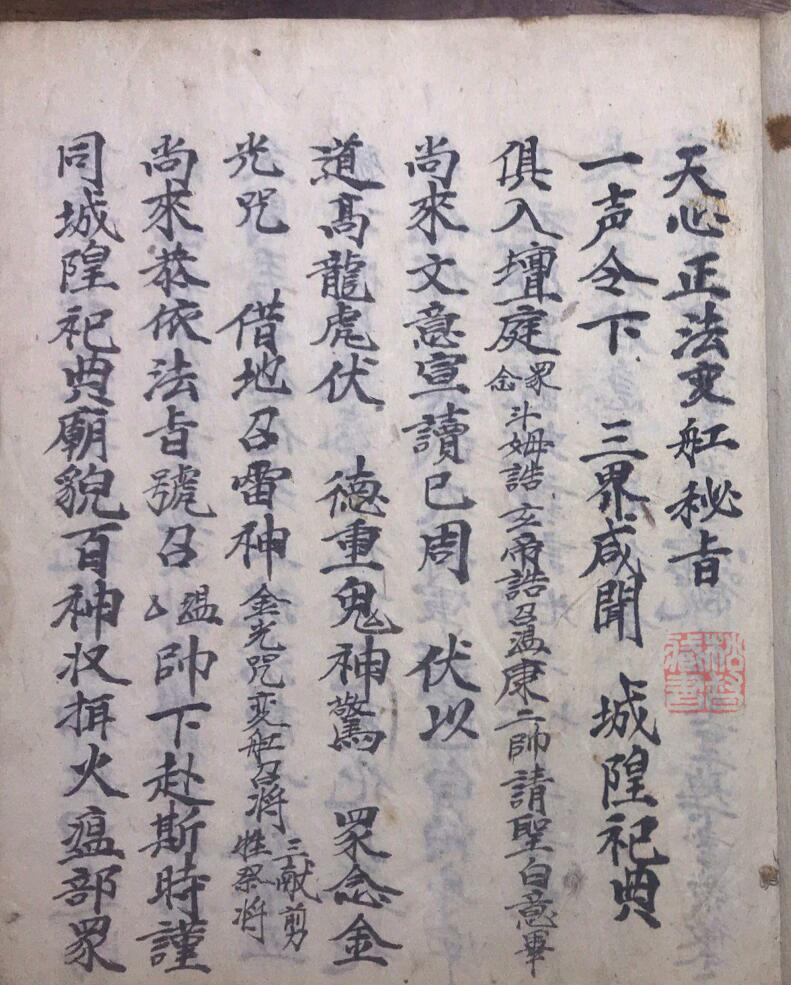 天心正法变舡秘旨
一声令下 三界咸聞 城隍祀典
俱入壇庭 眾念斗姆誥玄帝誥召温康二帥請聖白意畢
尚來文意宣讀已周 伏以
道高龍虎伏 德重鬼神驚 眾念金
光咒 借地召雷神 金光咒変舡召将 三献剪牲祭将
尚來恭依法旨號召 温 帅下赴斯時謹
同城隍祀典廟貌百神収捐火瘟部眾
松哲藏書